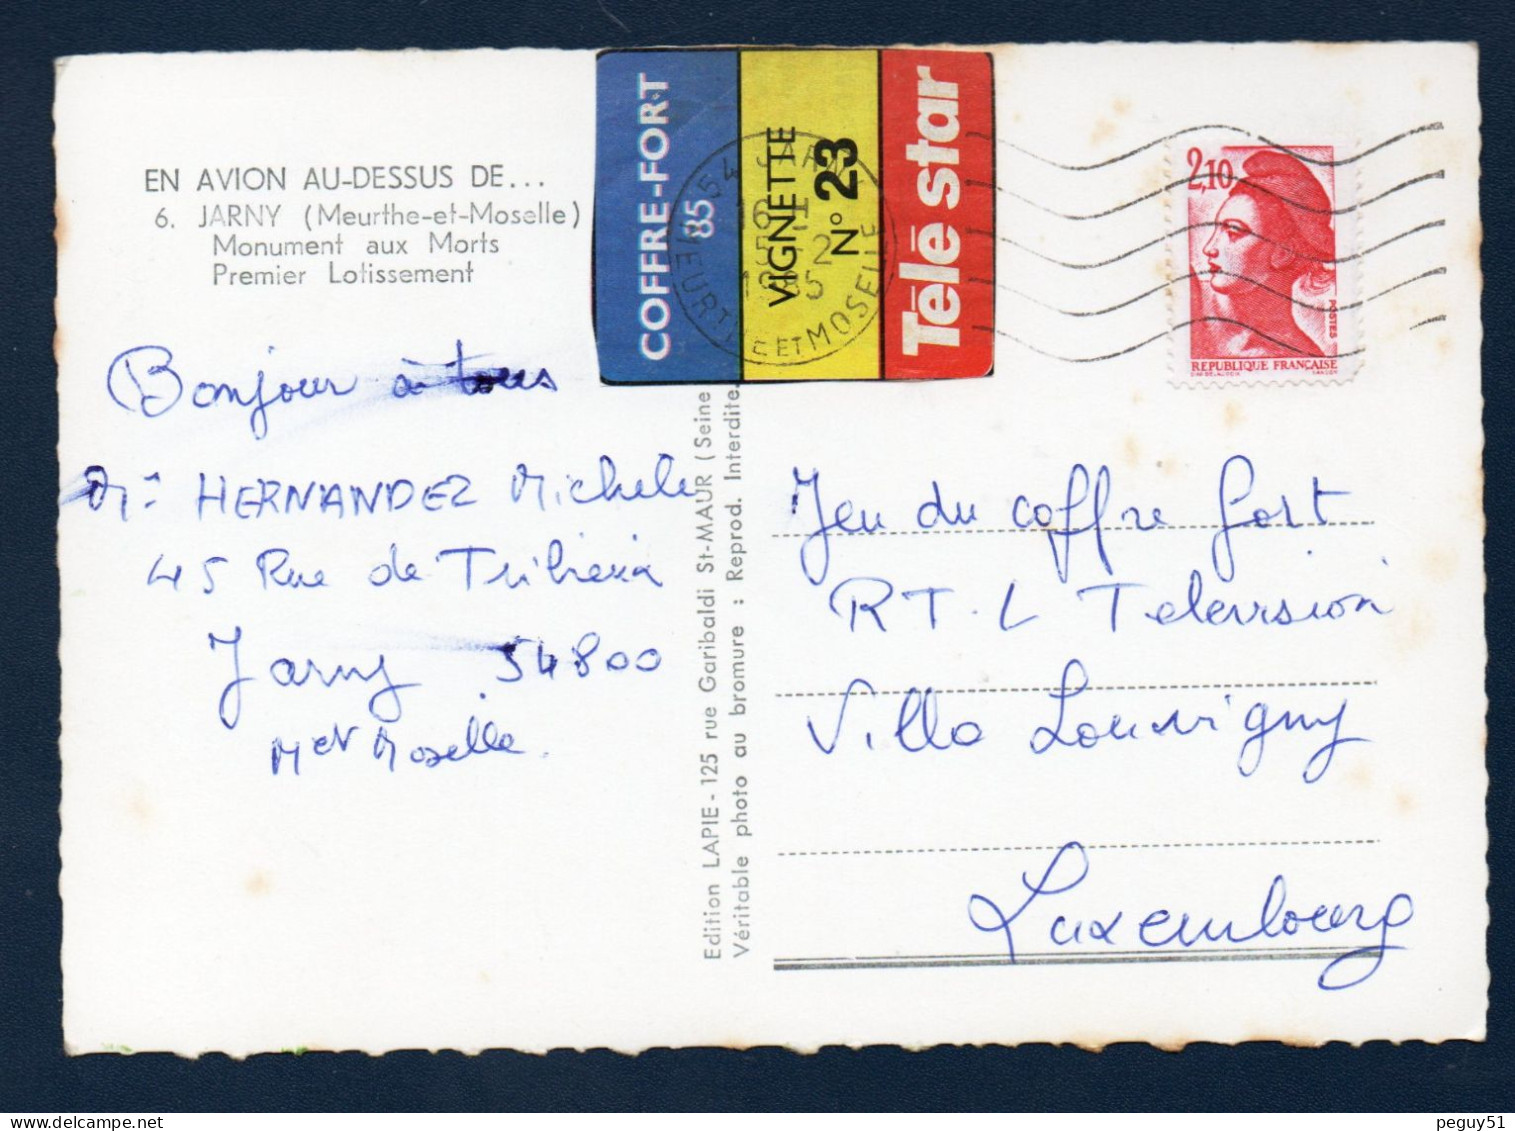 EN AVION AU-DESSUS DE...
6. JARNY (Meurthe-et-Moselle)
Monument aux Morts
Premier Lotissement
Bonjour à tous
HERNANDEZ Michele
45 Rue de
Jarny 54800
M et Moselle.
Edition LAPIE - 125 rue Garibaldi St-MAUR (Seine
Véritable photo au bromure : Reprod. Interdite.
COFFRE-FORT
85
VIGNETTE
N° 23
Télé star
54 JARNY
16 H
5-12
1985
MEURTHE ET MOSELLE
2,10
POSTES
REPUBLIQUE FRANÇAISE
Jeu du coffre fort
R T. L Television
Villa Louvigny
Luxembourg
peguy51